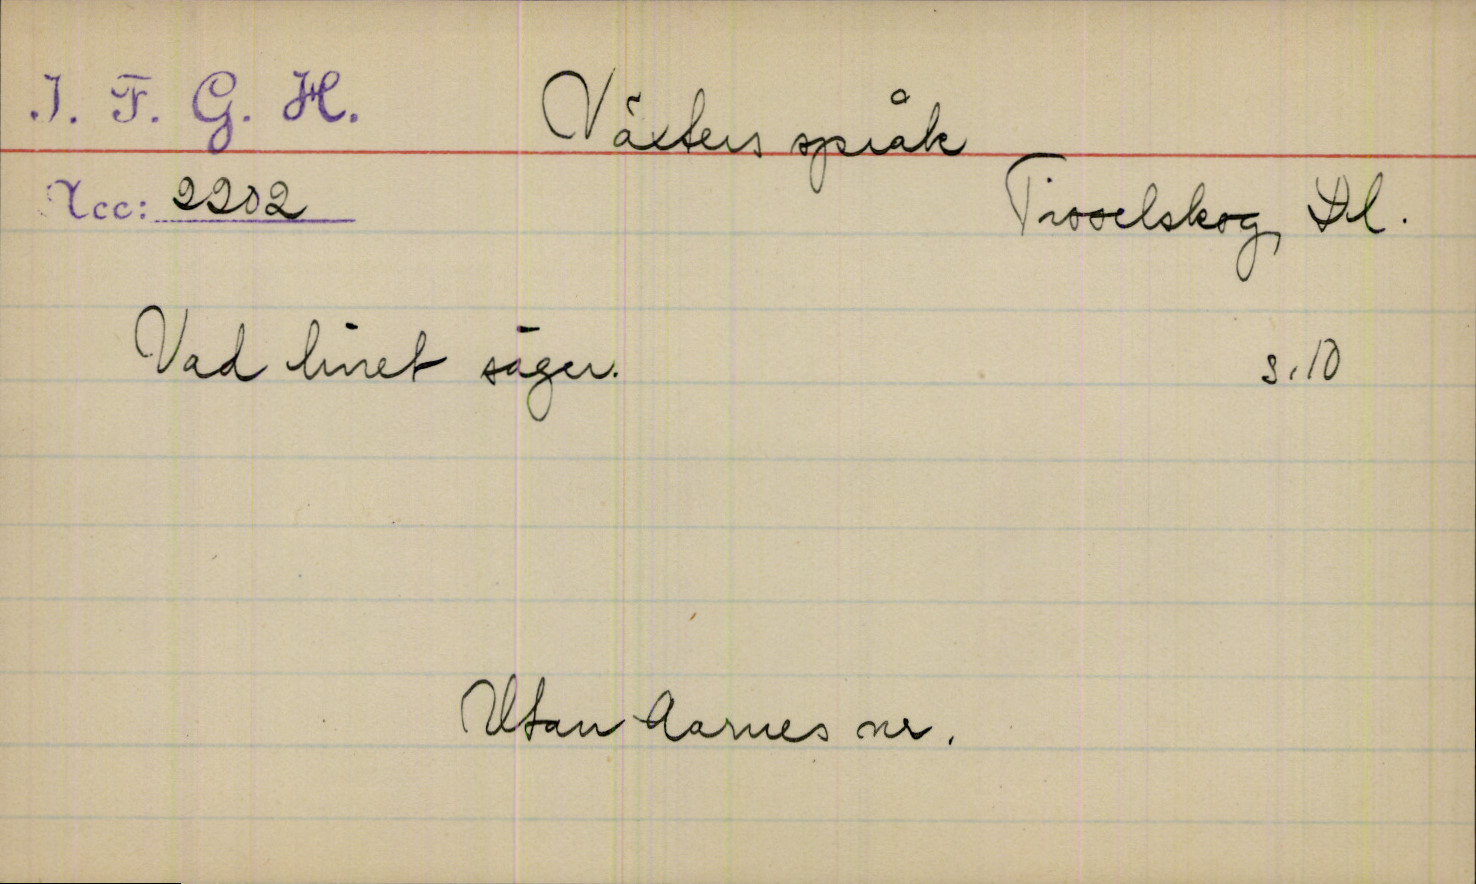 I. F. G. H.
Växters språk
Acc: 2202
Tisselskog, Dl.
Vad linet säger.
s. 10
Utan Aarnes nr.